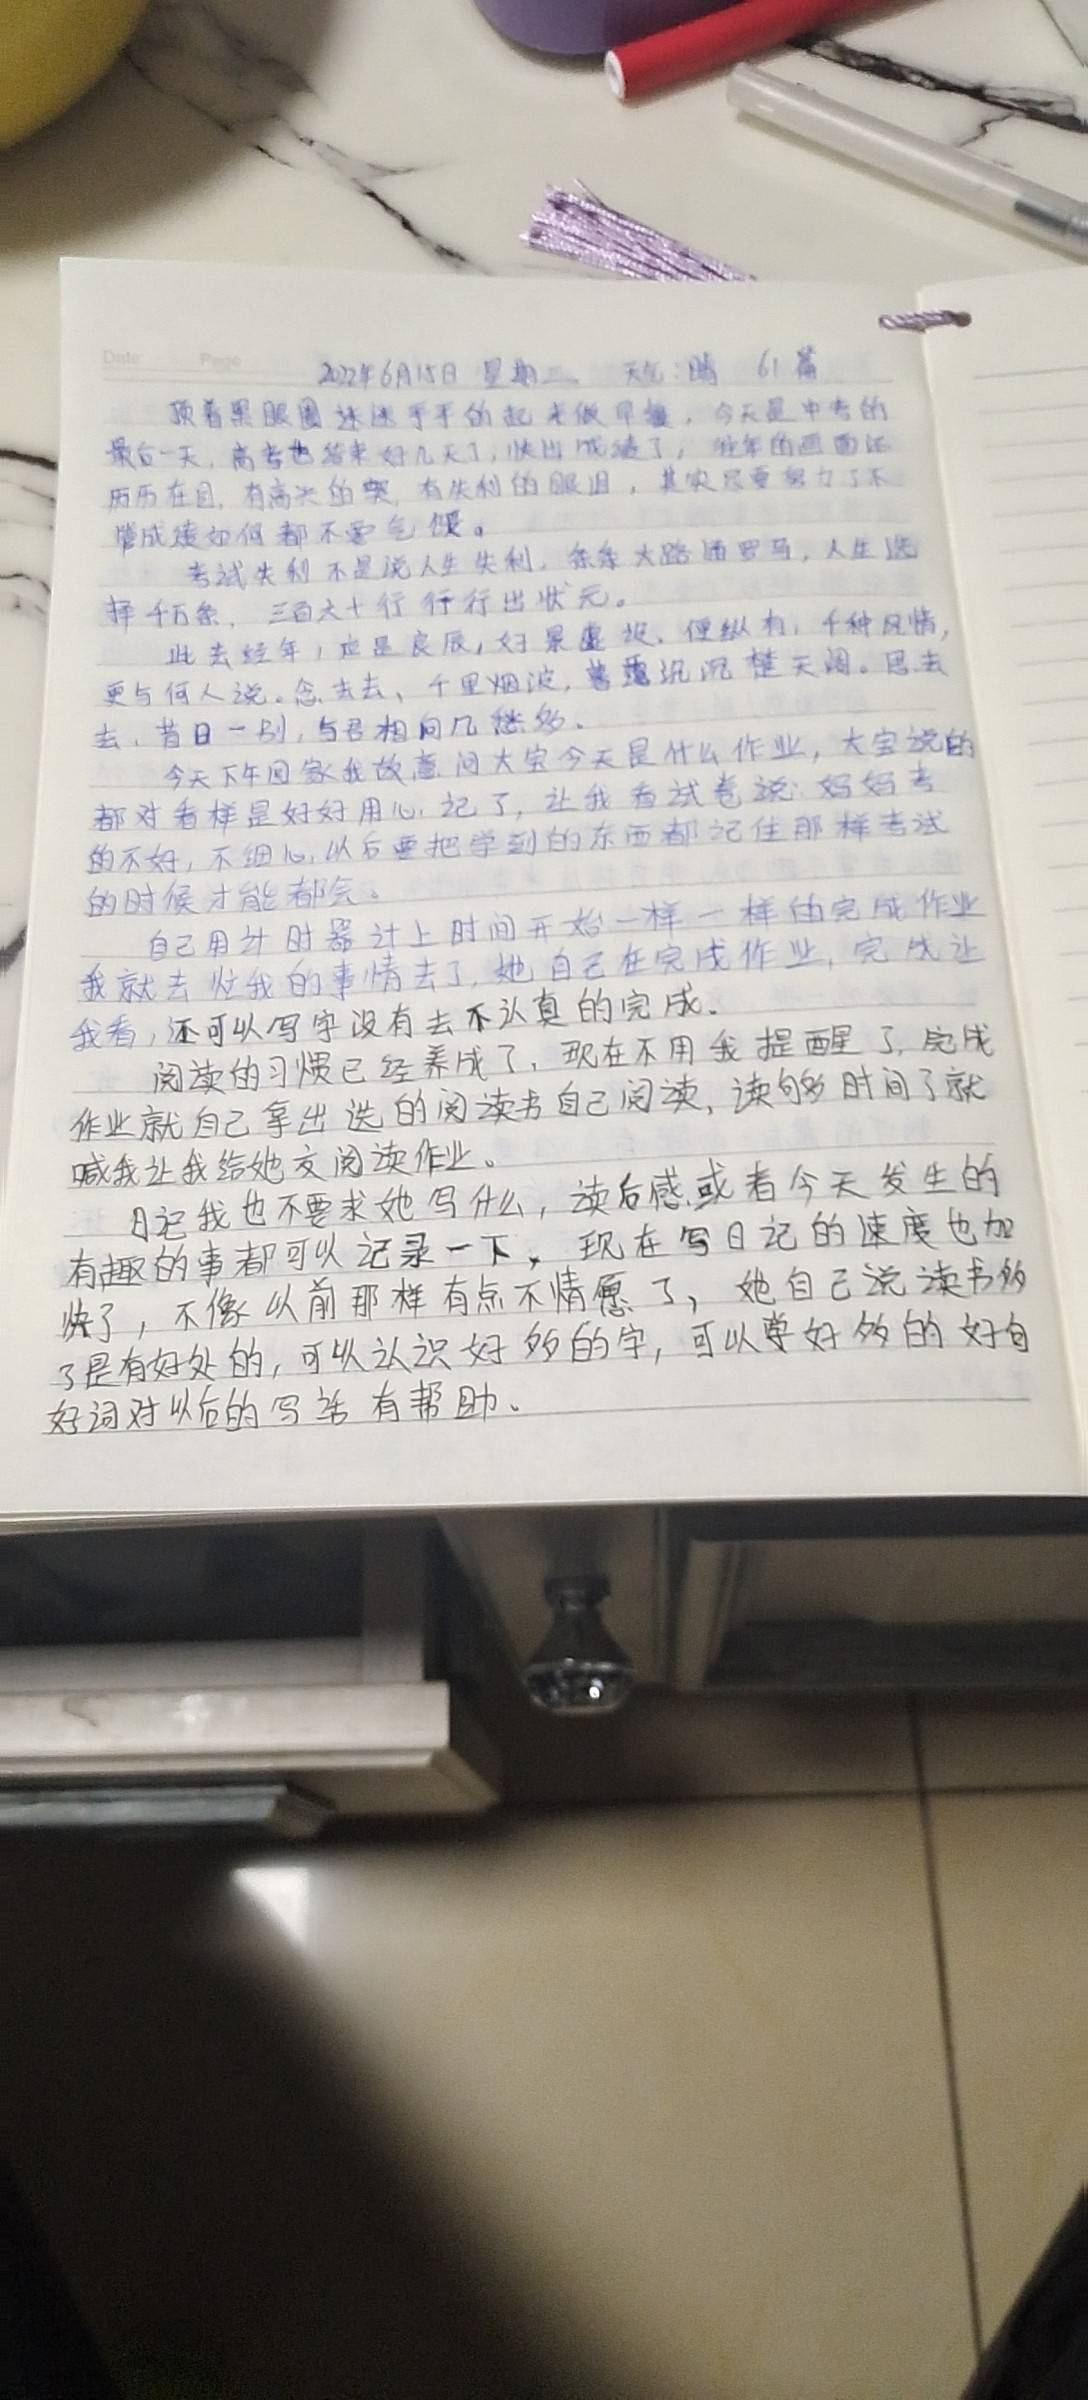 Date Page
2022年6月15日 星期二 天气:晴 61篇
顶着黑眼圈迷迷乎乎的起来做早餐,今天是中考的
最后一天,高考也结束好几天了,快出成绩了,往年的画面还
历历在目,有高兴的哭,有失利的眼泪,其实只要努力了不
管成绩如何都不要气馁。
考试失利不是说人生失利,条条大路通罗马,人生选
择千万条,三百六十行行行出状元。
此去经年,应是良辰,好景虚设、便纵有,千种风情,
更与何人说。念去去、千里烟波,暮霭沉沉楚天阔。思去
去,昔日一别,与君相问几愁多、
今天下午回家我故意问大宝今天是什么作业,大宝说的
都对看样是好好用心记了,让我看试卷说:妈妈考
的不好,不细心,以后要把学到的东西都记住那样考试
的时候才能都会。
自己用计时器计上时间开始一样一样的完成作业
我就去忙我的事情去了,她自己在完成作业,完成让
我看,还可以写字没有去不认真的完成、
阅读的习惯已经养成了,现在不用我提醒了,完成
作业就自己拿出选的阅读书自己阅读,读够时间了就
喊我让我给她交阅读作业。
日记我也不要求她写什么,读后感或者今天发生的
有趣的事都可以记录一下,现在写日记的速度也加
快了,不像以前那样有点不情愿了,她自己说读书多
了是有好处的,可以认识好多的字,可以学好多的好句
好词对以后的写话有帮助、